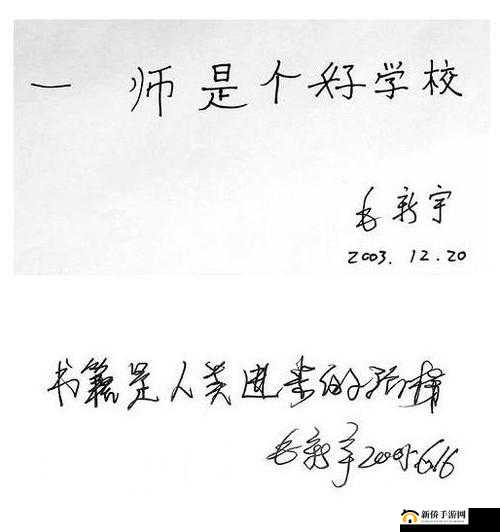 一 师是个好学校
毛新宇
2003.12.20
书籍是人类进步的阶梯
毛新宇2005.6.16
新侨手游网